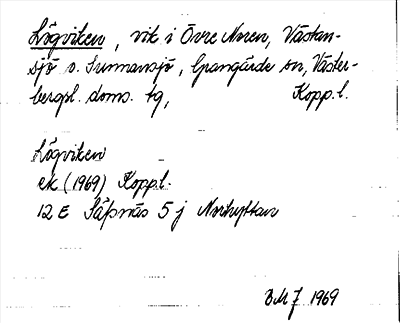 Lögviken, vik i Övre Noren, Västan-
sjö o. Sunnansjö, Grangärde sn, Väster-
bergsl. doms. tg, Kopp.l.
Lögviken
ek (1969) Kopp.l.
12 E Säfsnäs 5 j Norhyttan
BMJ 1969